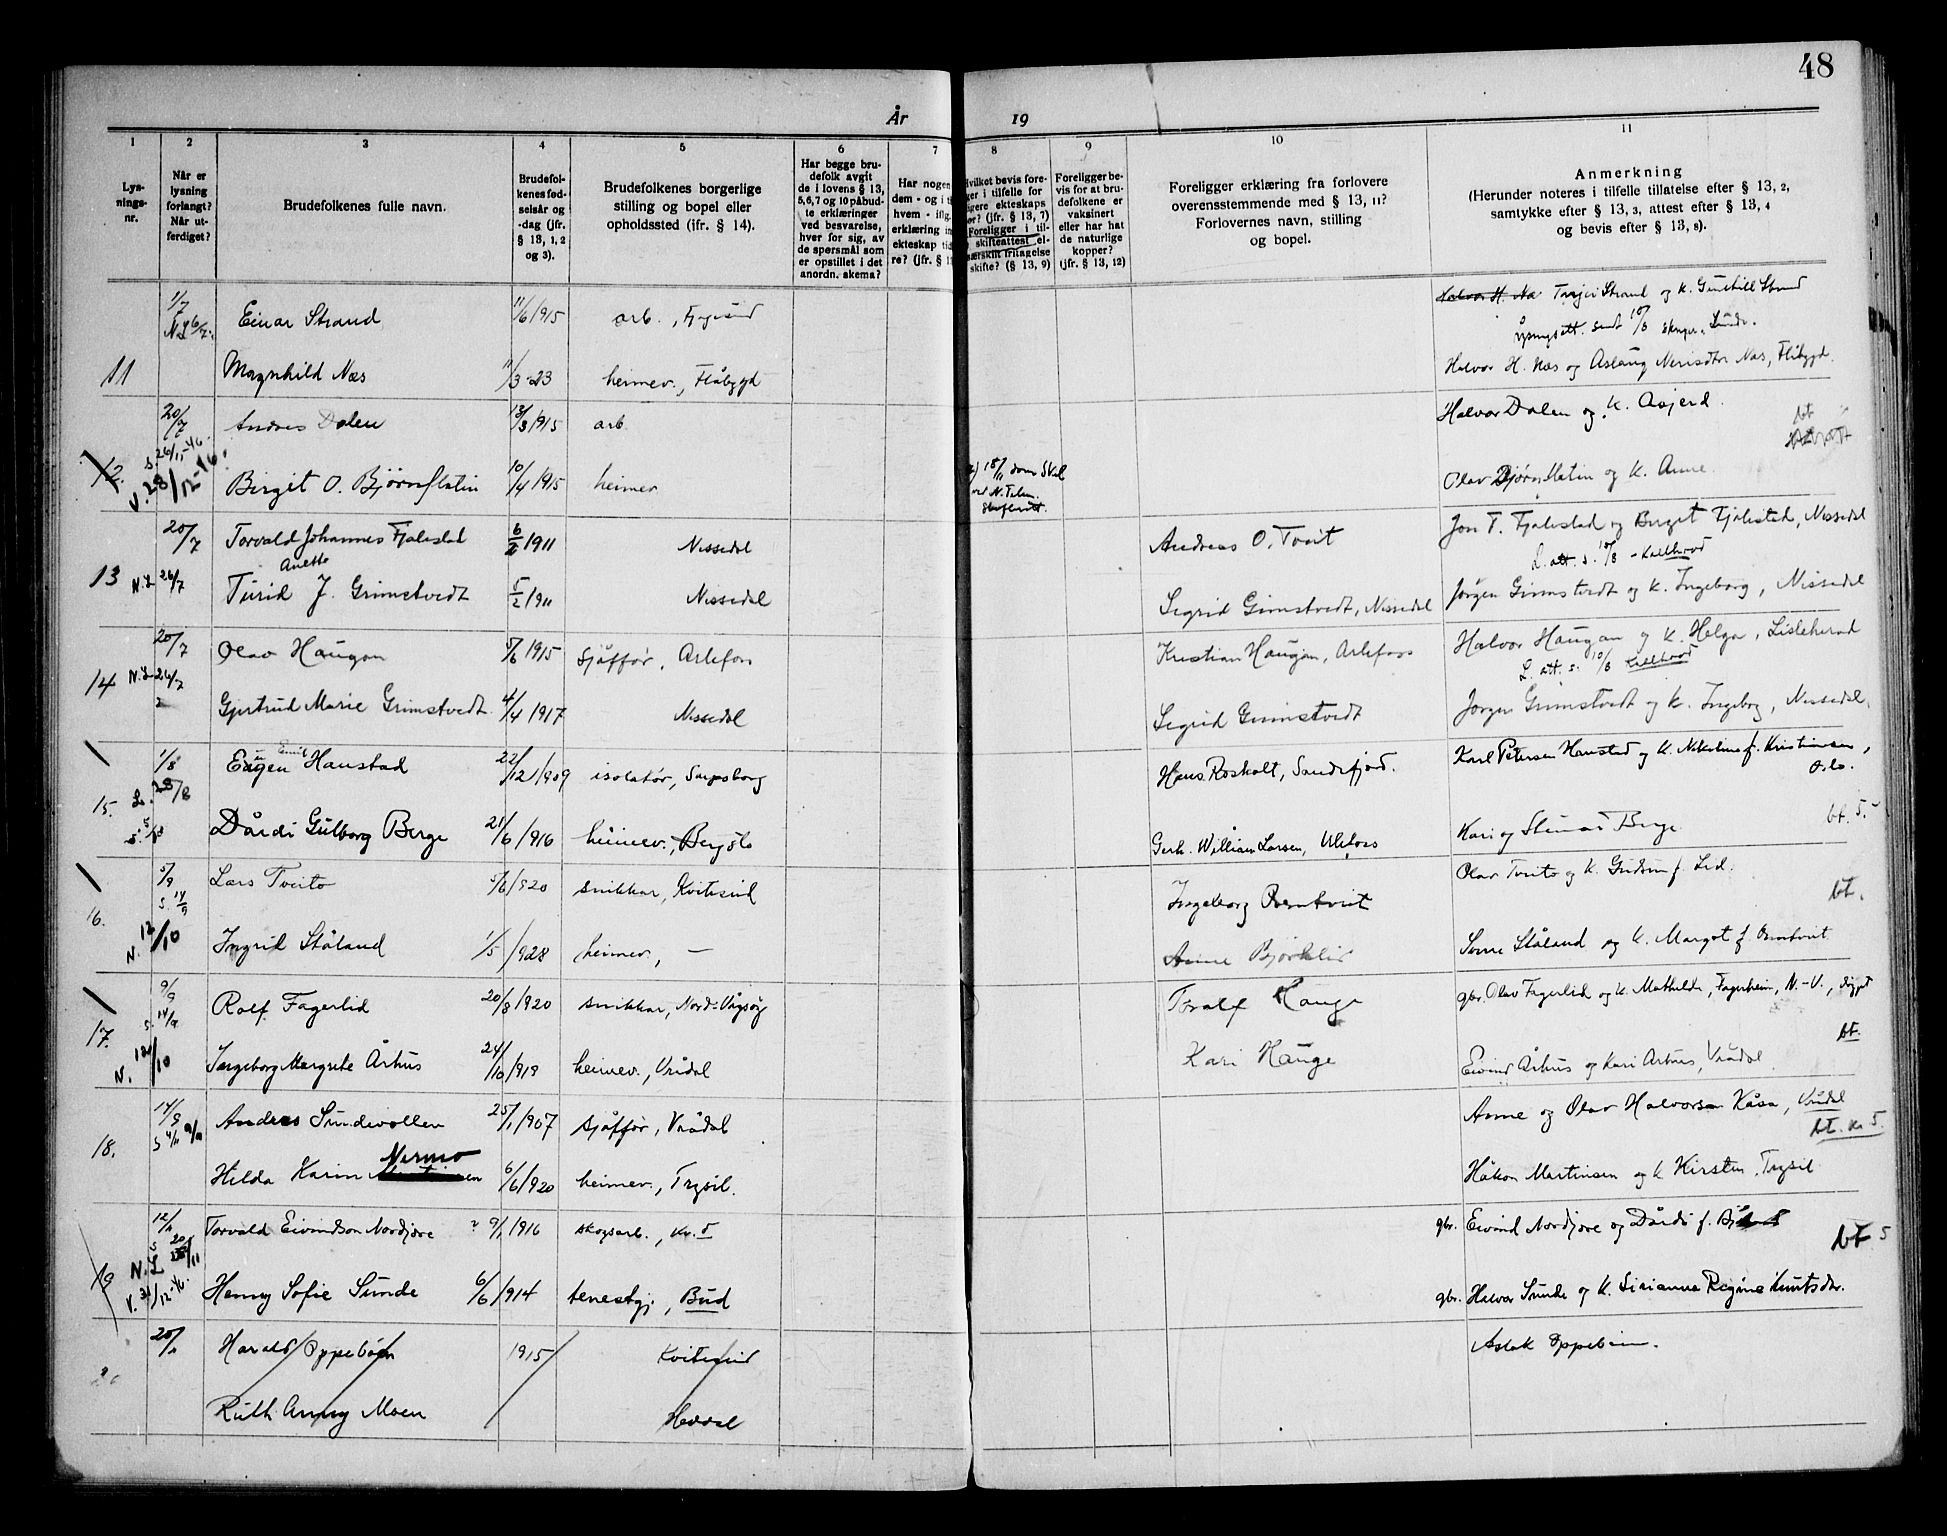 48
År 19
1 2 3 4 5 6 7 8 9 10 11
Lys-
nings-
nr.
Når er
lysning
forlangt?
Når ut-
ferdiget?
Brudefolkenes fulle navn.
Brudefol-
kenes fød-
selsår og
-dag (jfr.
§ 13, 1, 2
og 3).
Brudefolkenes borgerlige
stilling og bopel eller
opholdssted (ifr. § 14).
Har begge bru-
defolk avgit
de i lovens § 13,
5, 6, 7 og 10 påbud-
te erklæringer
ved besvarelse,
hver for sig, av
de spørsmål som
er opstillet i det
anordn. skema?
Har nogen
dem - og i t
hvem - ifl.
erklæring in
ekteskap tid
re? (jfr. § 1
Hvilket bevis fore-
ger i tilfelle for
igere ekteskaps
or? (jfr. § 13, 7)
Foreligger i til-
skifteattest el-
særskilt fritagelse
skifte? (§ 13, 9)
Foreligger be-
vis for at bru-
defolkene er
vaksinert
eller har hat
de naturlige
kopper?
(jfr. § 13, 12)
Foreligger erklæring fra forlovere
overensstemmende med § 13, 11?
Forlovernes navn, stilling
og bopel.
Anmerkning
(Herunder noteres i tilfelle tillatelse efter § 13, 2,
samtykke efter § 13, 3, attest efter § 13, 4
og bevis efter § 13, 8).
1/7 Einar Strand 11/6 1915 arb., Strand og k. Gunhild Strand
10/8
11 Magnhild Næs 11/3-23 heimev., Flåbygd Halvor H. Næs og Aslaug Næs, Flåbygd.
20/7 Andres Dalen 13/3 1915 arb Halvor Dalen og k. Asjerd. bt
12. V. 28/12-46. Birgit O. Bjørnflatin 10/4 1915 heimev Olav Bjørnflatin og k. Anne
20/7 Torvald Johannes Fjalestad 6/2 1911 Nissedal Andreas O. Tveit Jon T. Fjalestad og Birgit Fjalestad, Nissedal
Anette L. att. s. 10/8
13 N.L 26/7 Turid J. Grimstvedt 5/2 1911 Nissedal Sigrid Grimstvedt, Nissedal Jørgen Grimstvedt og k. Ingeborg, Nissedal
20/7 Olav Haugan 5/6 1915 sjåffør, Kristian Haugan, Halvor Haugan og k. Helga, Lisleherad
L. att. s. 10/8
14 N.L 26/7 Gjertrud Marie Grimstvedt 4/4 1917 Nissedal Sigrid Grimstvedt Jørgen Grimstvedt og k. Ingeborg, Nissedal.
1/8 Eugen Emil Hanstad 22/12 1909 isolatør, Sarpsborg Hans Roskalt, Sandefjord. Karl Petersen Hanstad og k. f. Kristiansen,
Oslo.
15. 28/8 Dårdi Gulborg Berge 21/6 1916 heimev., Gerh. William Larsen, Ulefoss Kari og Steinar Berge bt. 5.
5/9 Lars Tveito 5/6 1920 snikkar, Kviteseid Ingeborg Olav Tveito og k. Gudrun f. Lid.
bt.
16. N. 12/10 Ingrid Ståland 1/5 1928 heimev., — Anne Bjørklid Ståland og k. Margot f.
9/9 Rolf Fagerlid 20/8 1920 snikkar, Nord-Vågsøy Toralf Hauge gbr. Olav Fagerlid og k. Mathilde, Fagerheim, N.-V.,
bt.
17. N. 12/10 Ingeborg Margrete Århus 24/10 1919 heimev., Vrådal Kari Hauge Eivind Århus og Kari Århus, Vrådal
14/9 Andres Sundvollen 25/1 1907 sjåffør, Vrådal Anne og Olav Halvorsen Kåsa, Vrådal
bt. kr 5.
18. Hilda Karin Nermo 6/6 1920 heimev., Trysil. Håkon Martinsen og k Kirsten, Trysil
12/11 Torvald Eivindson Nordjore ? 9/1 1916 skogsarb., gbr. Eivind Nordjore og Dårdi f.
bt 5
19 N.L V. 31/12-46. Henny Sofie Sunde 6/6 1914 tenestgj, Bud gbr. Halvor Sunde og k. Sirianna Regine Knutsdtr.
20/ Harald Oppebøen 1915 Kviteseid Aslak Oppebøen.
20 Ruth Anny Moen Heddal